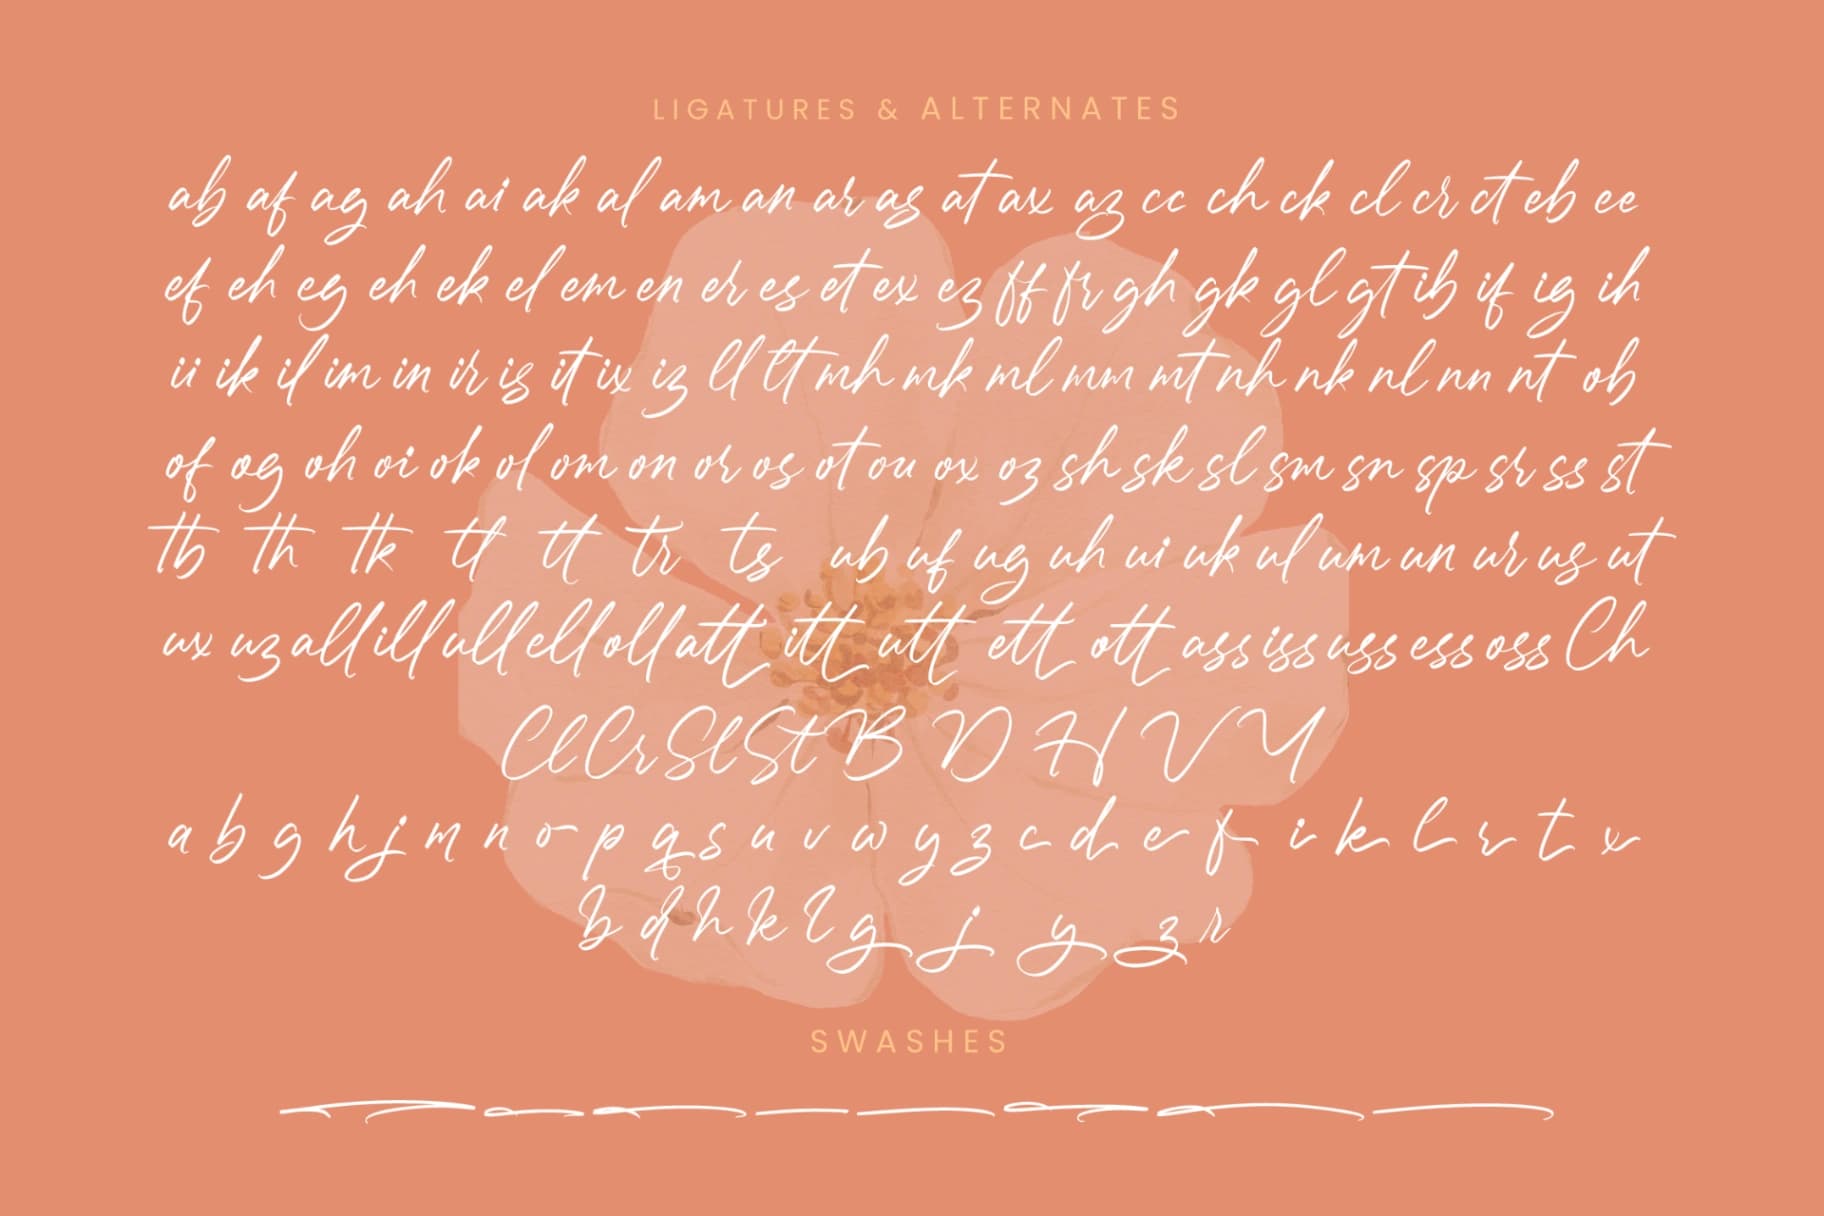 LIGATURES & ALTERNATES
ab af ag ah ai ak al am an ar as at ax az cc ch ck cl cr ct eb ee
ef eh eg eh ek el em en er es et ex ez ff fr gh gk gl gt ib if ig ih
ii ik il im in ir is it ix iz ll lt mh mk ml mm mt nh nk nl nn nt ob
of og oh oi ok ol om on or os ot ou ox oz sh sk sl sm sn sp sr ss st
tb th tk tl tt tr ts ub uf ug uh ui uk ul um un ur us ut
ux uz all ill ull ell oll att itt utt ett ott ass iss uss ess oss Ch
Cl Cr Sl St B D H V Y
a b g h j m n o p q s u v w y z c d e f i k l r t x
b d h k l g j y z r
SWASHES